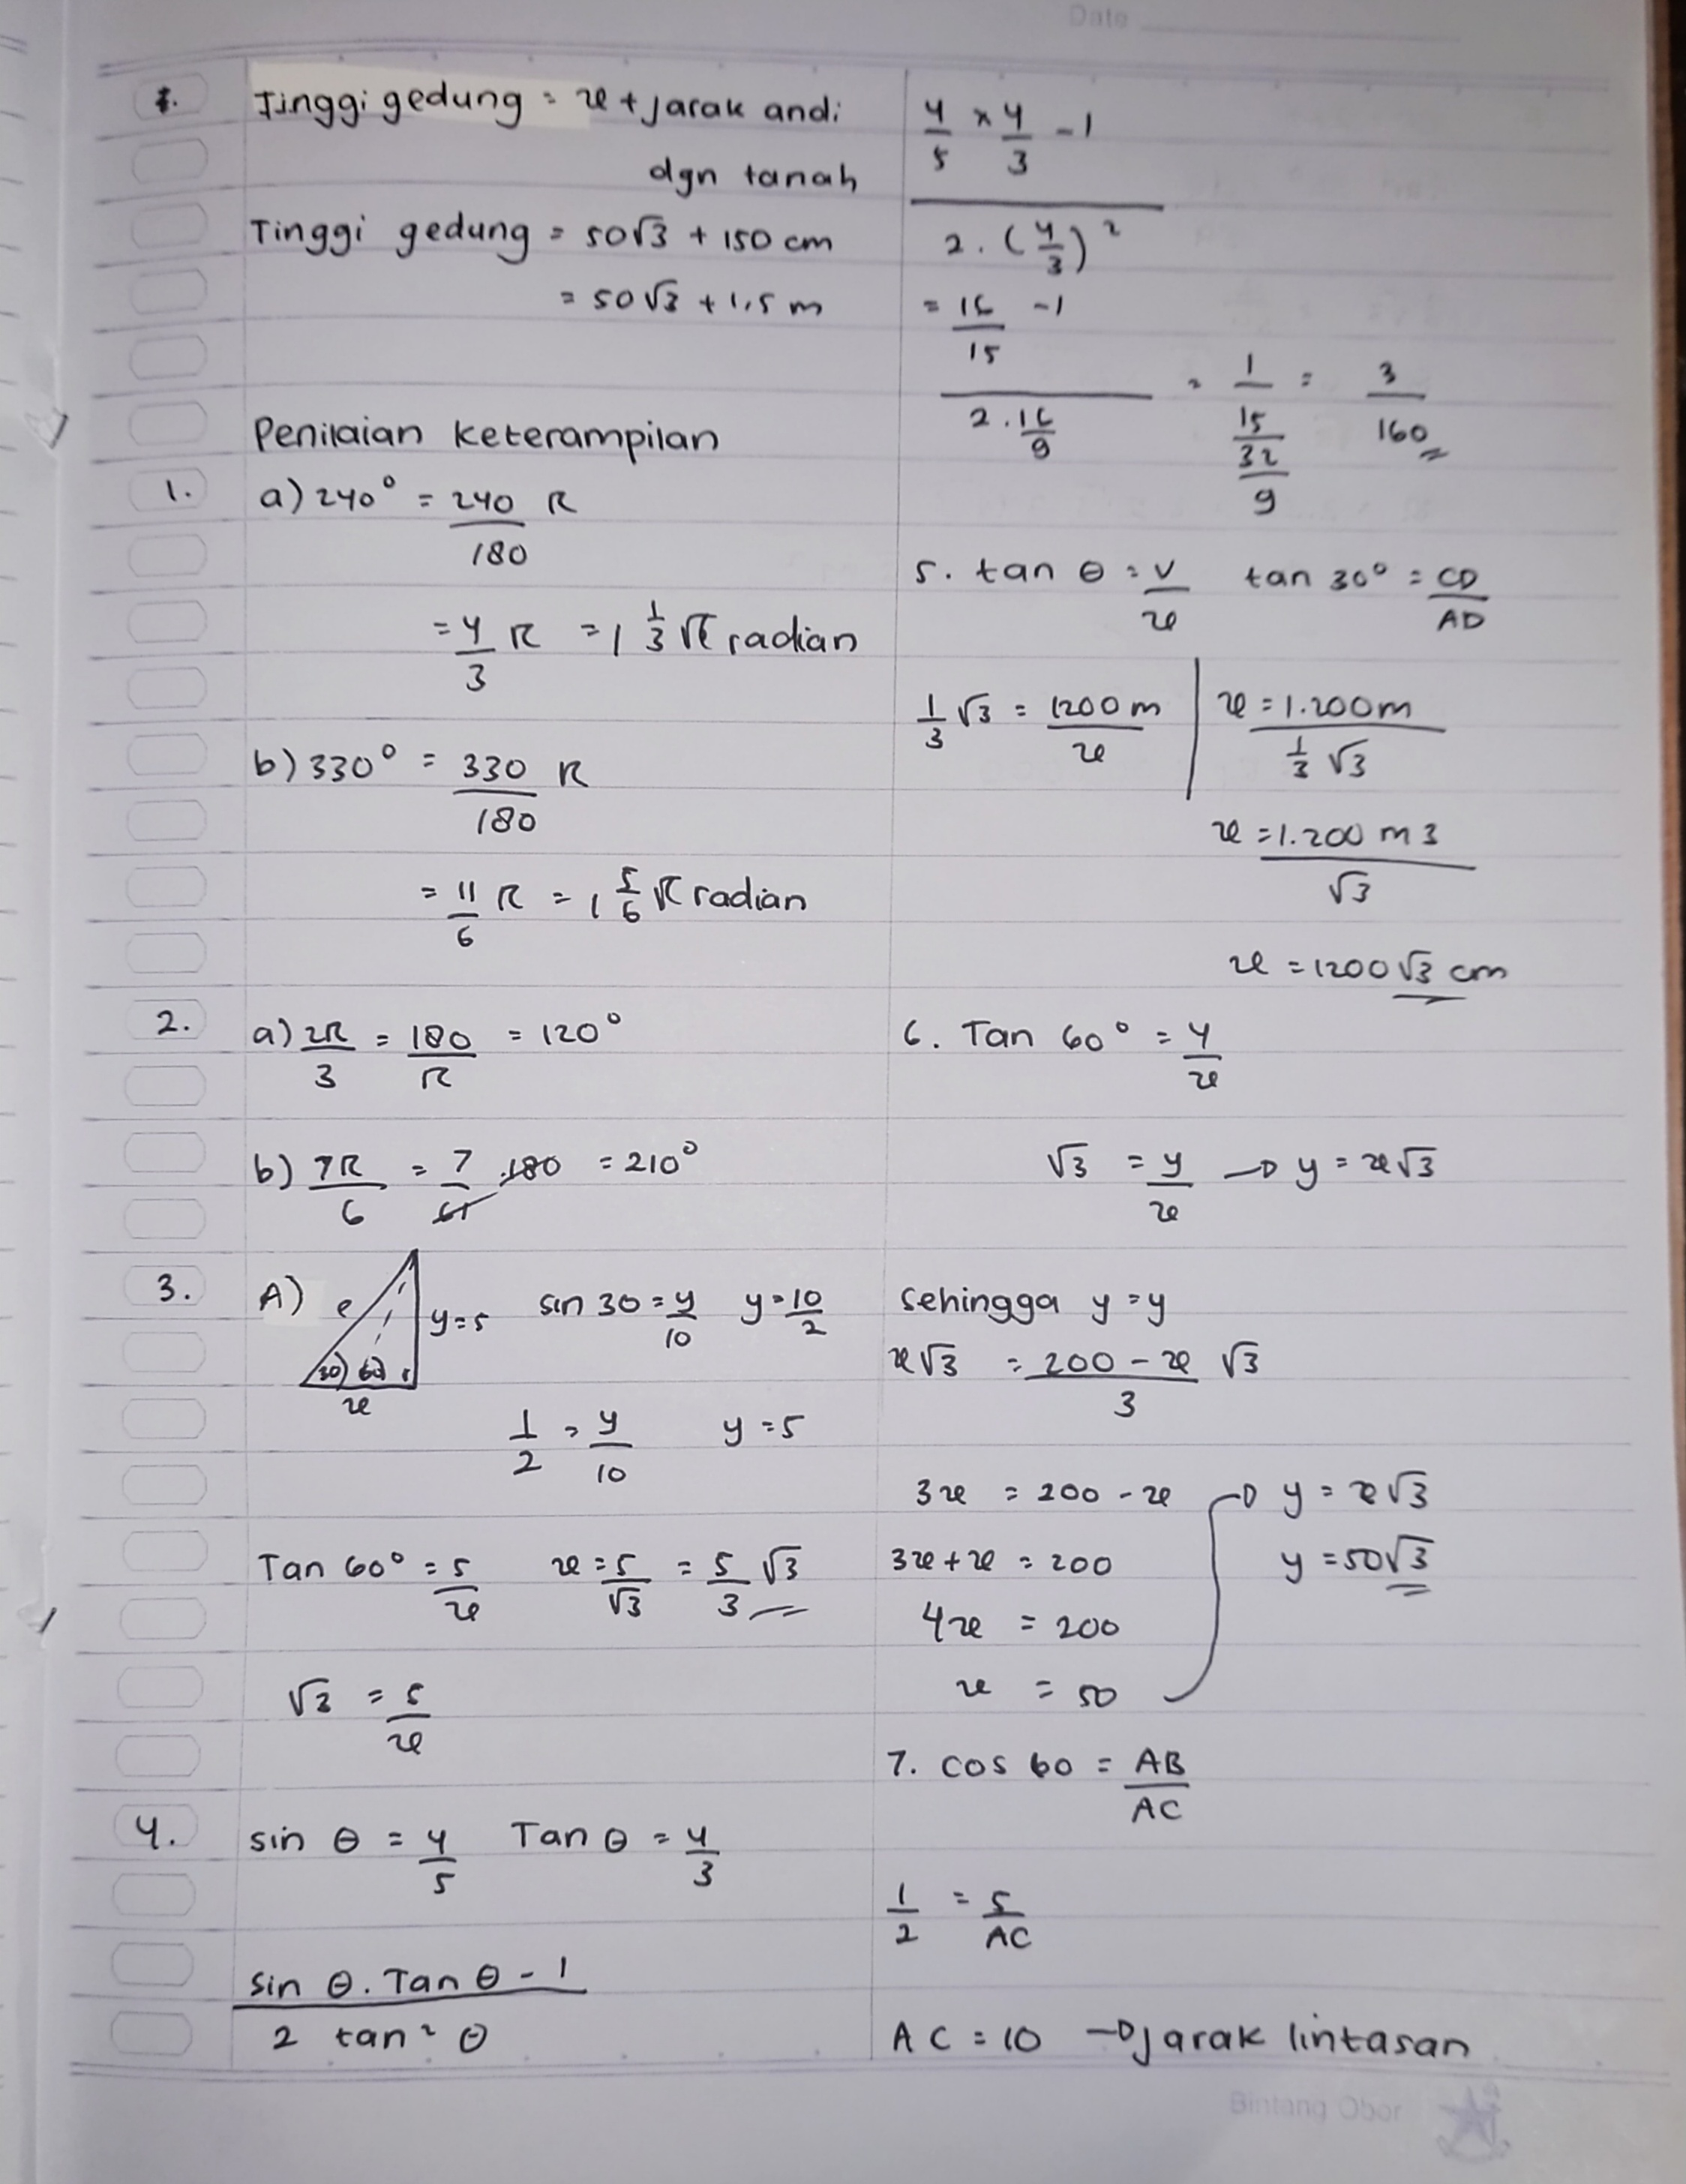 Date
1. Tinggi gedung = x + jarak andi
dgn tanah
Tinggi gedung = 50√3 + 150 cm
= 50√3 + 1,5 m
Penilaian keterampilan
1. a) 240° = 240/180 π
= 4/3 π = 1 1/3 π radian
b) 330° = 330/180 π
= 11/6 π = 1 5/6 π radian
2. a) 2π/3 = 180/π = 120°
b) 7π/6 = 7/6π . 180 = 210°
3. A) y=5 sin 30 = y/10 y = 10/2
30 60
x
1/2 = y/10 y = 5
Tan 60° = 5/x x = 5/√3 = 5/3 √3
√3 = 5/x
4. sin θ = 4/5 Tan θ = 4/3
sin θ . Tan θ - 1
2 tan² θ
4/5 x 4/3 - 1
2 . (4/3)²
= 16/15 - 1
2 . 16/9
= 1/15 / 32/9 = 3/160
5. tan θ = y/x tan 30° = CD/AD
1/3 √3 = 1200 m/x x = 1.200 m / 1/3 √3
x = 1.200 m 3/√3
x = 1200 √3 cm
6. Tan 60° = y/x
√3 = y/x → y = x√3
sehingga y = y
x√3 = 200 - x/3 √3
3x = 200 - x → y = x√3
3x + x = 200 y = 50√3
4x = 200
x = 50
7. cos 60 = AB/AC
1/2 = 5/AC
AC = 10 → jarak lintasan
Bintang Obor